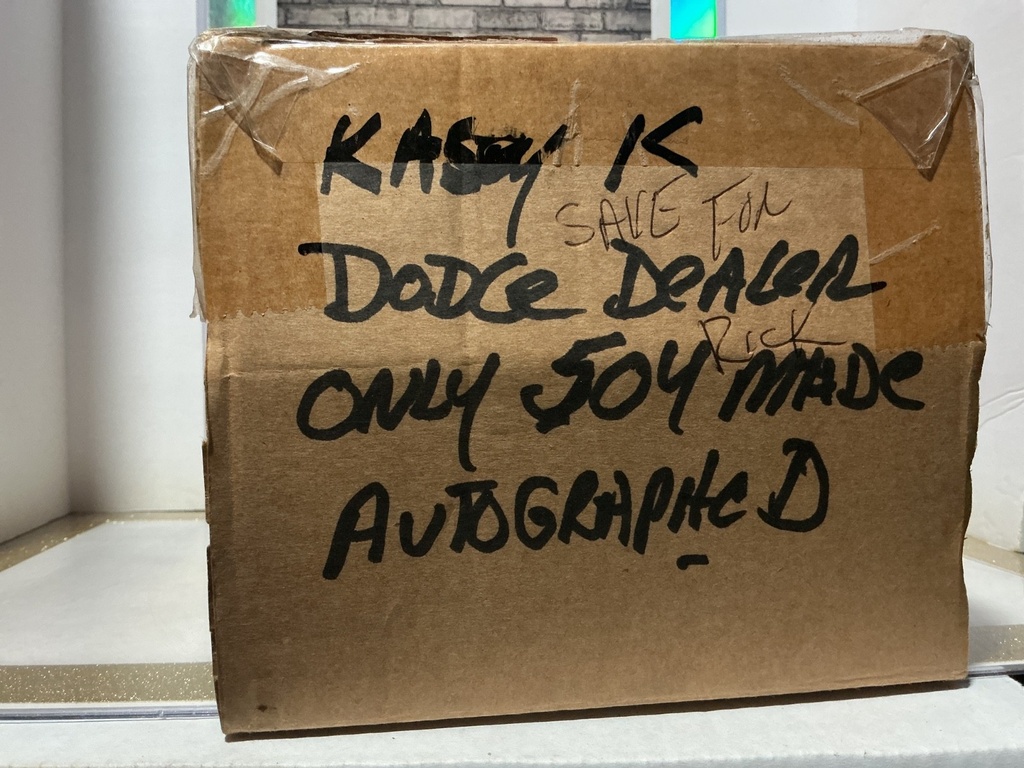 KASEY K
SAVE FOR
DODGE DEALER
RICK
ONLY 504 MADE
AUTOGRAPHED